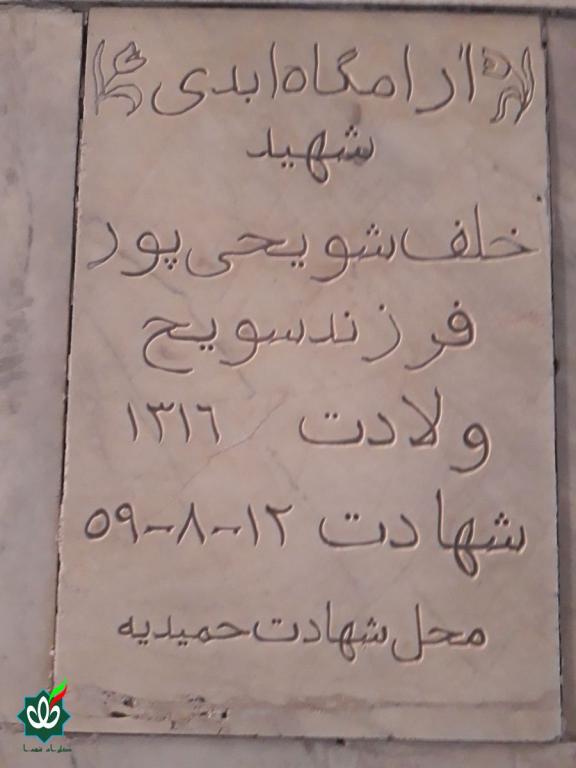 آرامگاه ابدی
شهید
خلف شویحی پور
فرزند سویح
ولادت ۱۳۱۶
شهادت ۱۲-۸-۵۹
محل شهادت حمیدیه